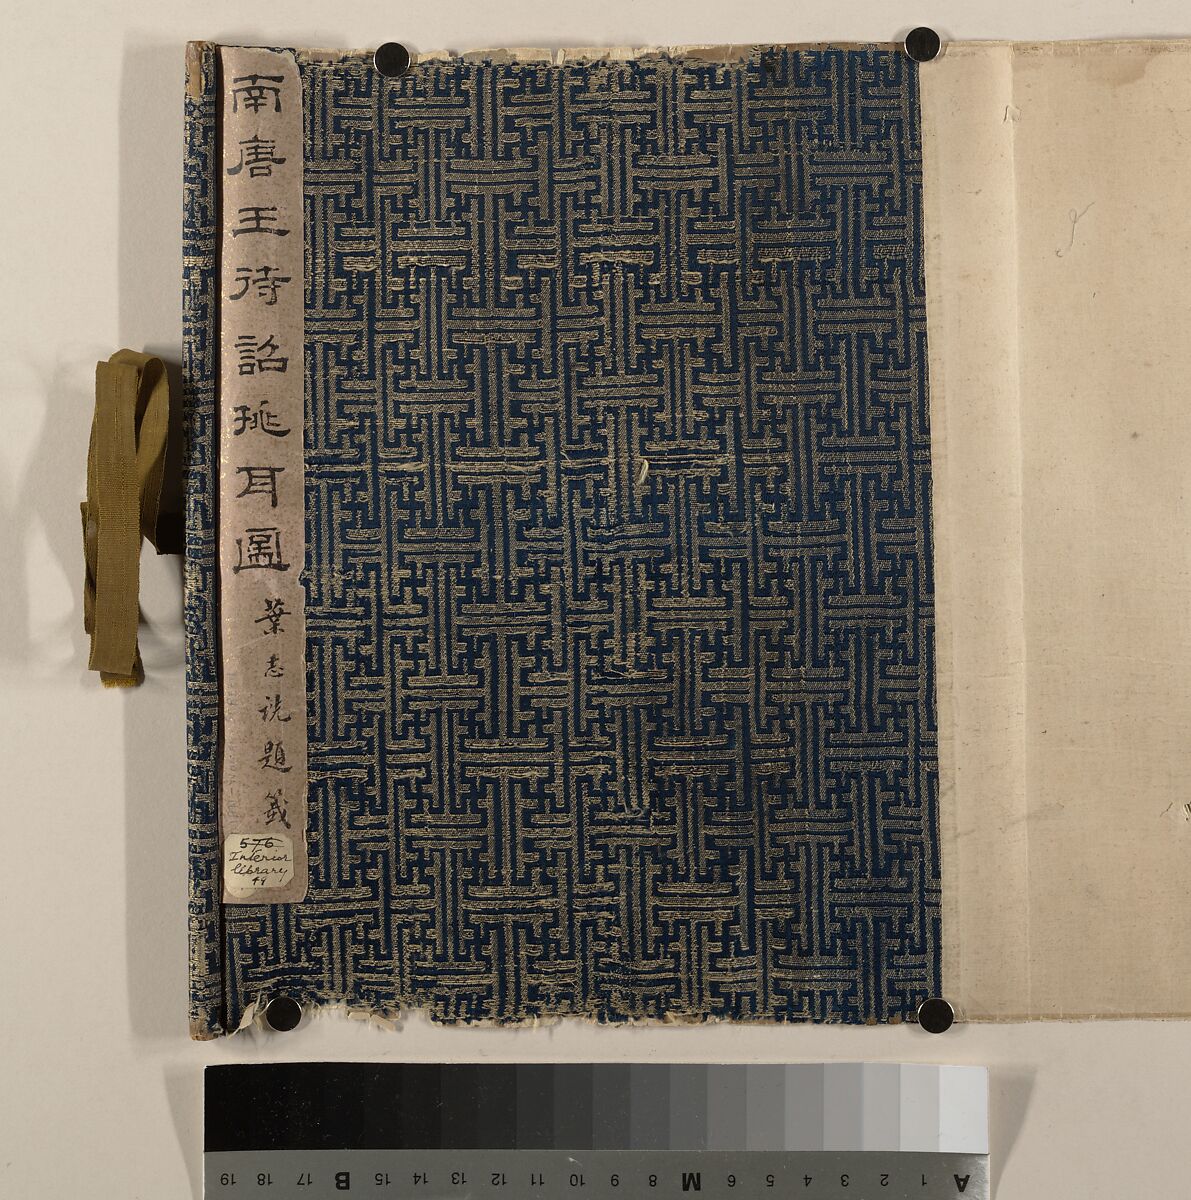 南唐王待詔挑耳圖
葉志詵題籤
576
Interior
library
49
19 18 17 B 15 14 13 12 11 10 9 8 M 6 5 4 3 2 1 A